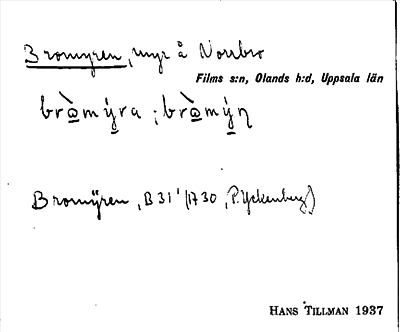 Bromyren, myr å Norrbro
Films s:n, Olands h:d, Uppsala län
brò̲mý̲ra ; brò̲mý̲n
Bromÿren, B 31 1/1730, P. Yckenberg)
HANS TILLMAN 1937